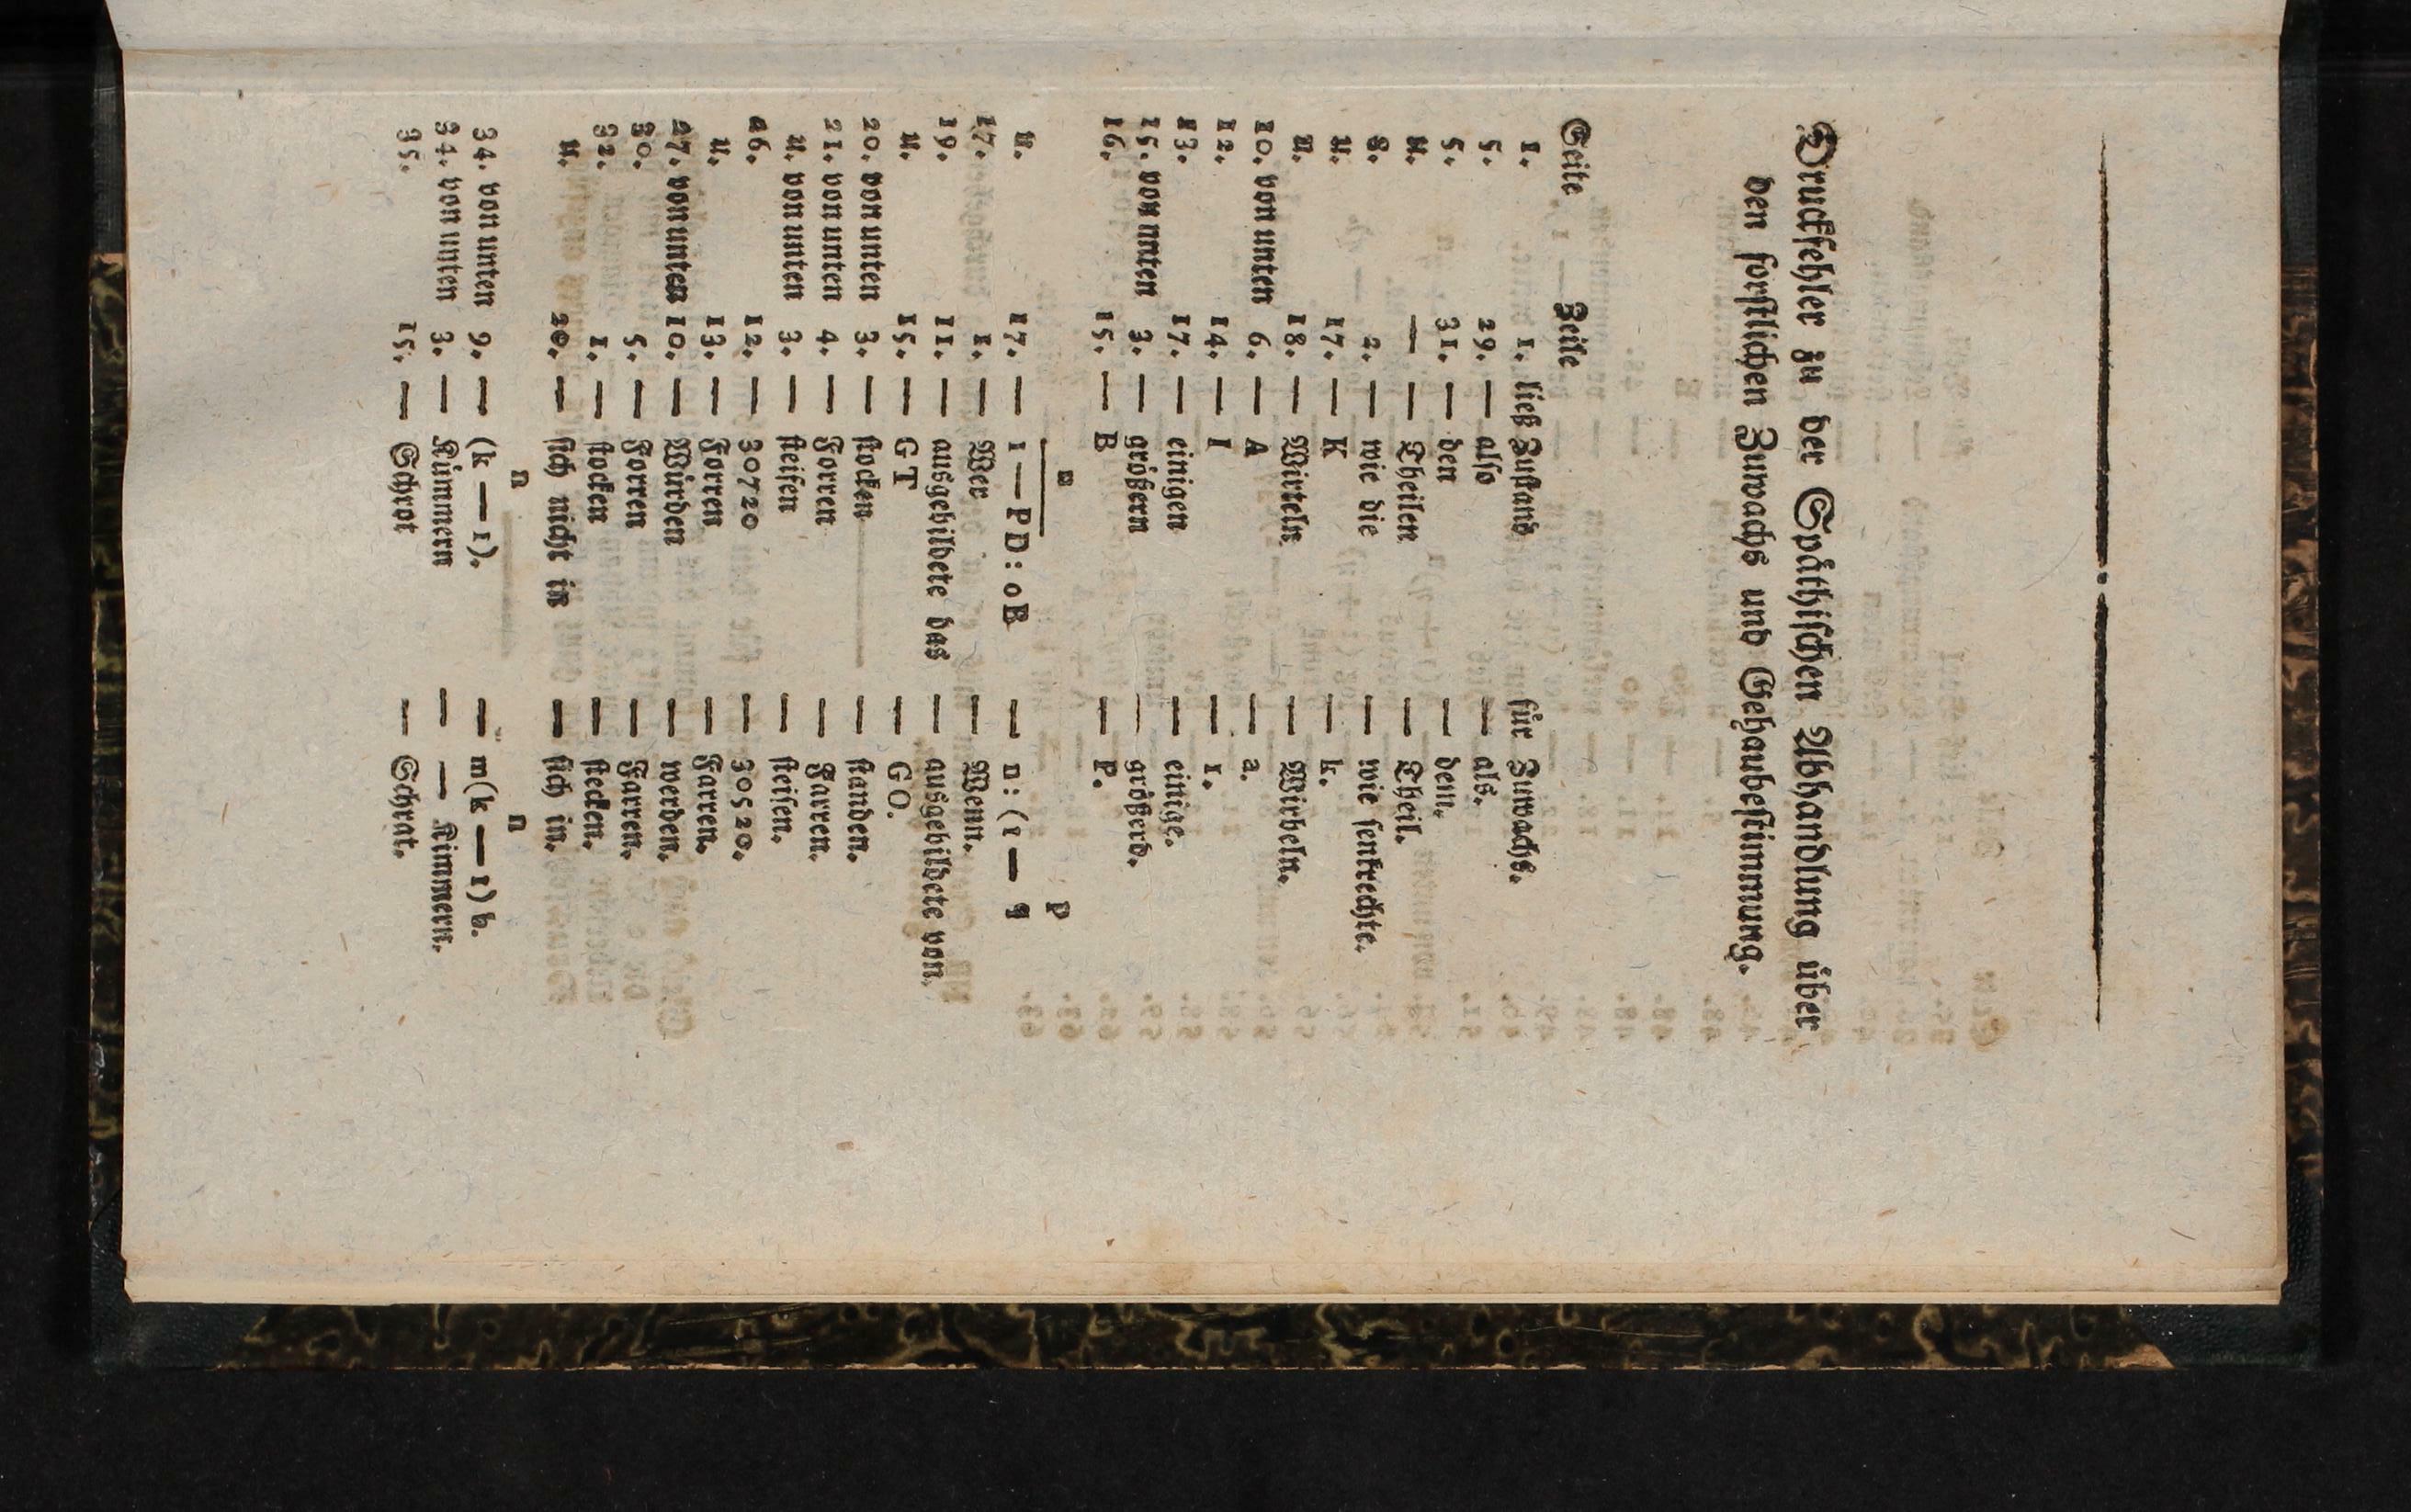 Druckfehler zu der Späthischen Abhandlung über
den forstlichen Zuwachs und Gehaubestimmung.
Seite Zeile
1. 1. ließ Zustand für Zuwachs.
5. 29. — also — als.
5. 31. — den — dem.
u. — — Theilen — Theil.
8. 2. — wie die — wie senkrechte.
u. 17. — K — k.
u. 18. — Wirteln — Wirbeln.
10. von unten 6. — A — a.
12. 14. — I — 1.
13. 17. — einigen — einige.
15. von unten 3. — größern — größerd.
16. 15. — B — P.
n p
u. 17. — 1 — PD: oB — n: (1 — q
17. 1. — Wer — Wenn.
19. 11. — ausgebildete das — ausgebildete von.
u. 15. — GT — GO.
20. von unten 3. — stocken — standen.
21. von unten 4. — Forren — Farren.
u. von unten 3. — steifen — steisen.
26. 12. — 30720 — 30520.
u. 13. — Forren — Farren.
27. von unten 10. — Würden — werden.
30. 5. — Forren — Farren.
32. 1. — stocken — stecken.
u. 20. — sich nicht in — sich in.
n n
34. von unten 9. — (k — 1). — m(k — 1) b.
34. von unten 3. — Kümmern — — Kimmern.
35. 15. — Schrot — Schrat.